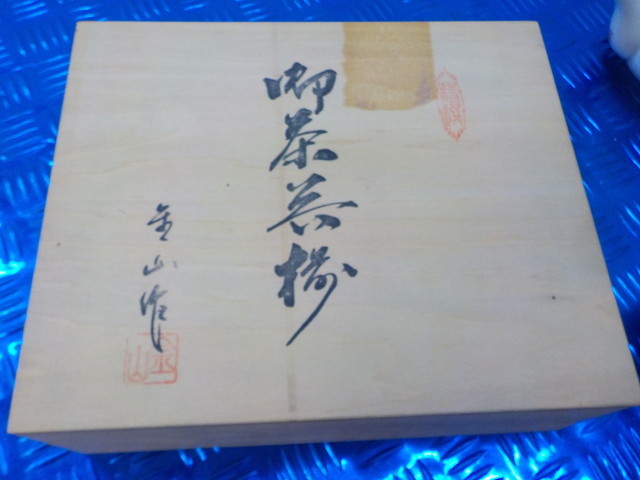 御茶呑揃
金山作